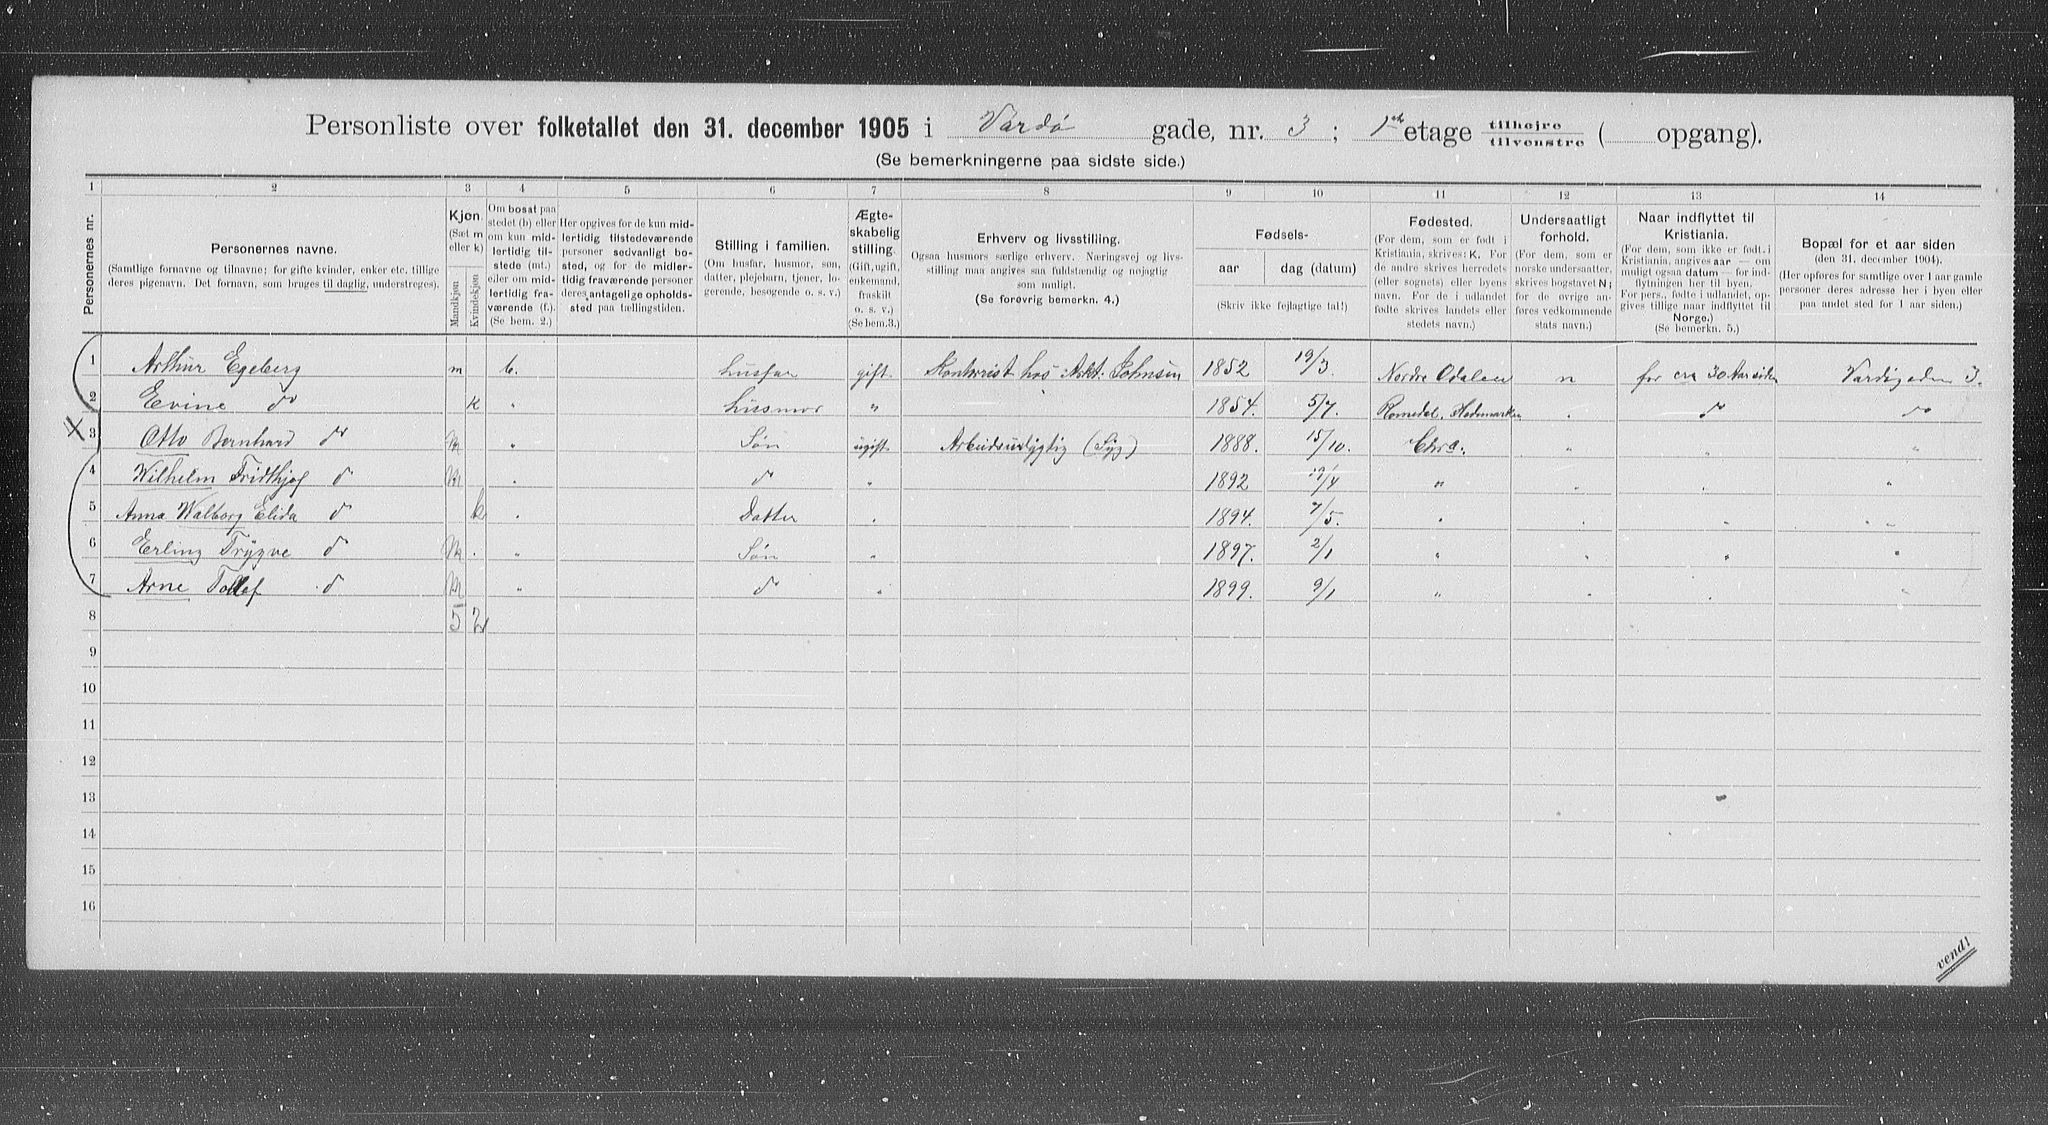 Personliste over folketallet den 31. december 1905 i Vardø gade, nr. 3; 1ste etage tilhøjre/tilvenstre ( opgang).
(Se bemerkningerne paa sidste side.)
1 2 3 4 5 6 7 8 9 10 11 12 13 14
Personernes nr.
Personernes navne.
(Samtlige fornavne og tilnavne; for gifte kvinder, enker etc. tillige deres pigenavn. Det fornavn, som bruges til daglig, understreges).
Kjøn.
(Sæt m eller k)
Mandkjøn
Kvindekjøn
Om bosat paa stedet (b) eller om kun midlertidig tilstede (mt.) eller om midlertidig fraværende (f.). (Se bem. 2.)
Her opgives for de kun midlertidig tilstedeværende personer sedvanligt bosted, og for de midlertidig fraværende personer deres antagelige opholdssted paa tællingstiden.
Stilling i familien.
(Om husfar, husmor, søn, datter, plejebarn, tjener, logerende, besøgende o. s. v.)
Ægteskabelig stilling.
(Gift, ugift, enkemand, fraskilt o. s. v.)
(Se bem.3.)
Erhverv og livsstilling.
Ogsaa husmors særlige erhverv. Næringsvej og livsstilling maa angives saa fuldstændig og nøjagtig som muligt.
(Se forøvrig bemerkn. 4.)
Fødsels-
aar
dag (datum)
(Skriv ikke fejlagtige tal!)
Fødested.
(For dem, som er født i Kristiania, skrives: K. For de andre skrives herredets (eller sognets) eller byens navn. For de i udlandet fødte skrives landets eller stedets navn.)
Undersaatligt forhold.
(For dem, som er norske undersaatter, skrives bogstavet N; for de øvrige anføres vedkommende stats navn.)
Naar indflyttet til Kristiania.
(For dem, som ikke er født i Kristiania, angives aar — om muligt ogsaa datum — for indflytningen her til byen. For pers., fødte i udlandet, opgives tillige naar indflyttet til Norge.)
(Se bemerkn. 5.)
Bopæl for et aar siden
(den 31. december 1904).
(Her opføres for samtlige over 1 aar gamle personer deres adresse her i byen eller paa andet sted for 1 aar siden.)
1 Arthur Egeberg m b. husfar gift Kontorist hos Arkt. Johnsen 1852 19/3. Nordre Odalen n for ca 30 Aar siden Vardøgaden 3.
2 Evine do k " husmor " 1854. 5/7. Romedal, Hedemarken " do do
X
3 Otto Bernhard do m " Søn ugift Arbeidsudygtig (Syg) 1888. 15/10. Chra. " " "
4 Wilhelm Fridthjof d m " d " 1892 /4 " " " "
5 Anna Walborg Elida d k " Datter " 1894. 7/5. " " " "
6 Erling Trygve d m " Søn " 1897. 2/1 " " " "
7 Arne d m " d " 1899. 9/1 " " " "
8 5 2
9
10
11
12
13
14
15
16
vend!